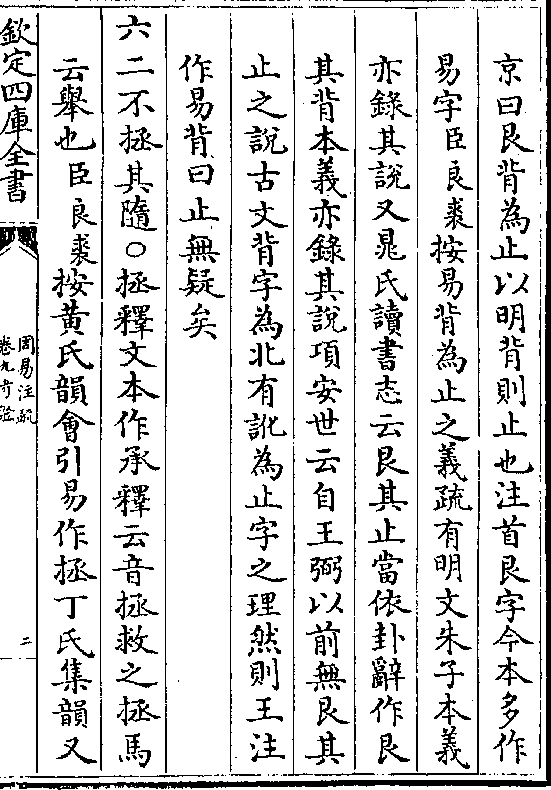 京曰艮背為止以明背則止也注首艮字今本多作
易字臣良裘按易背為止之義疏有明文朱子本義
亦錄其說又晁氏讀書志云艮其止當依卦辭作艮
其背本義亦錄其說項安世云自王弼以前無艮其
止之說古文背字為北有訛為止字之理然則王注
作易背曰止無疑矣
六二不拯其隨○拯釋文本作承釋云音拯救之拯馬
云舉也臣良裘按黃氏韻會引易作拯丁氏集韻又
欽定四庫全書
周易注疏
卷九考證
二